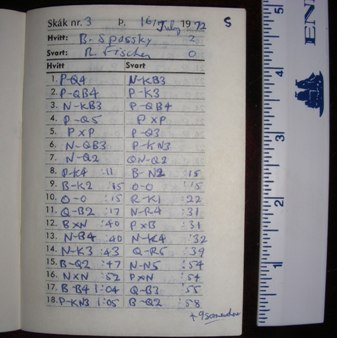 Skák nr. 3 Þ. 16/July 1972 S
Hvítt: B. Spassky 2
Svart: R. Fischer 0
Hvítt Svart
1. P-Q4 N-KB3
2. P-QB4 P-K3
3. N-KB3 P-QB4
4. P-Q5 P×P
5. P×P P-Q3
6. N-QB3 P-KN3
7. N-Q2 QN-Q2
8. P-K4 :11 B-N2 :15
9. B-K2 :15 O-O :15
10. O-O :15 R-K1 :22
11. Q-B2 :17 N-R4 :31
12. B×N :40 P×B :31
13. N-B4 40 N-K4 :32
14. N-K3 :43 Q-R5 :39
15. B-Q2 :47 N-N5 :54
16. N×N :52 P×N :54
17. B-B4 1:04 Q-B3 :55
18. P-KN3 1:05 B-Q2 :58
1
2
3
4
5